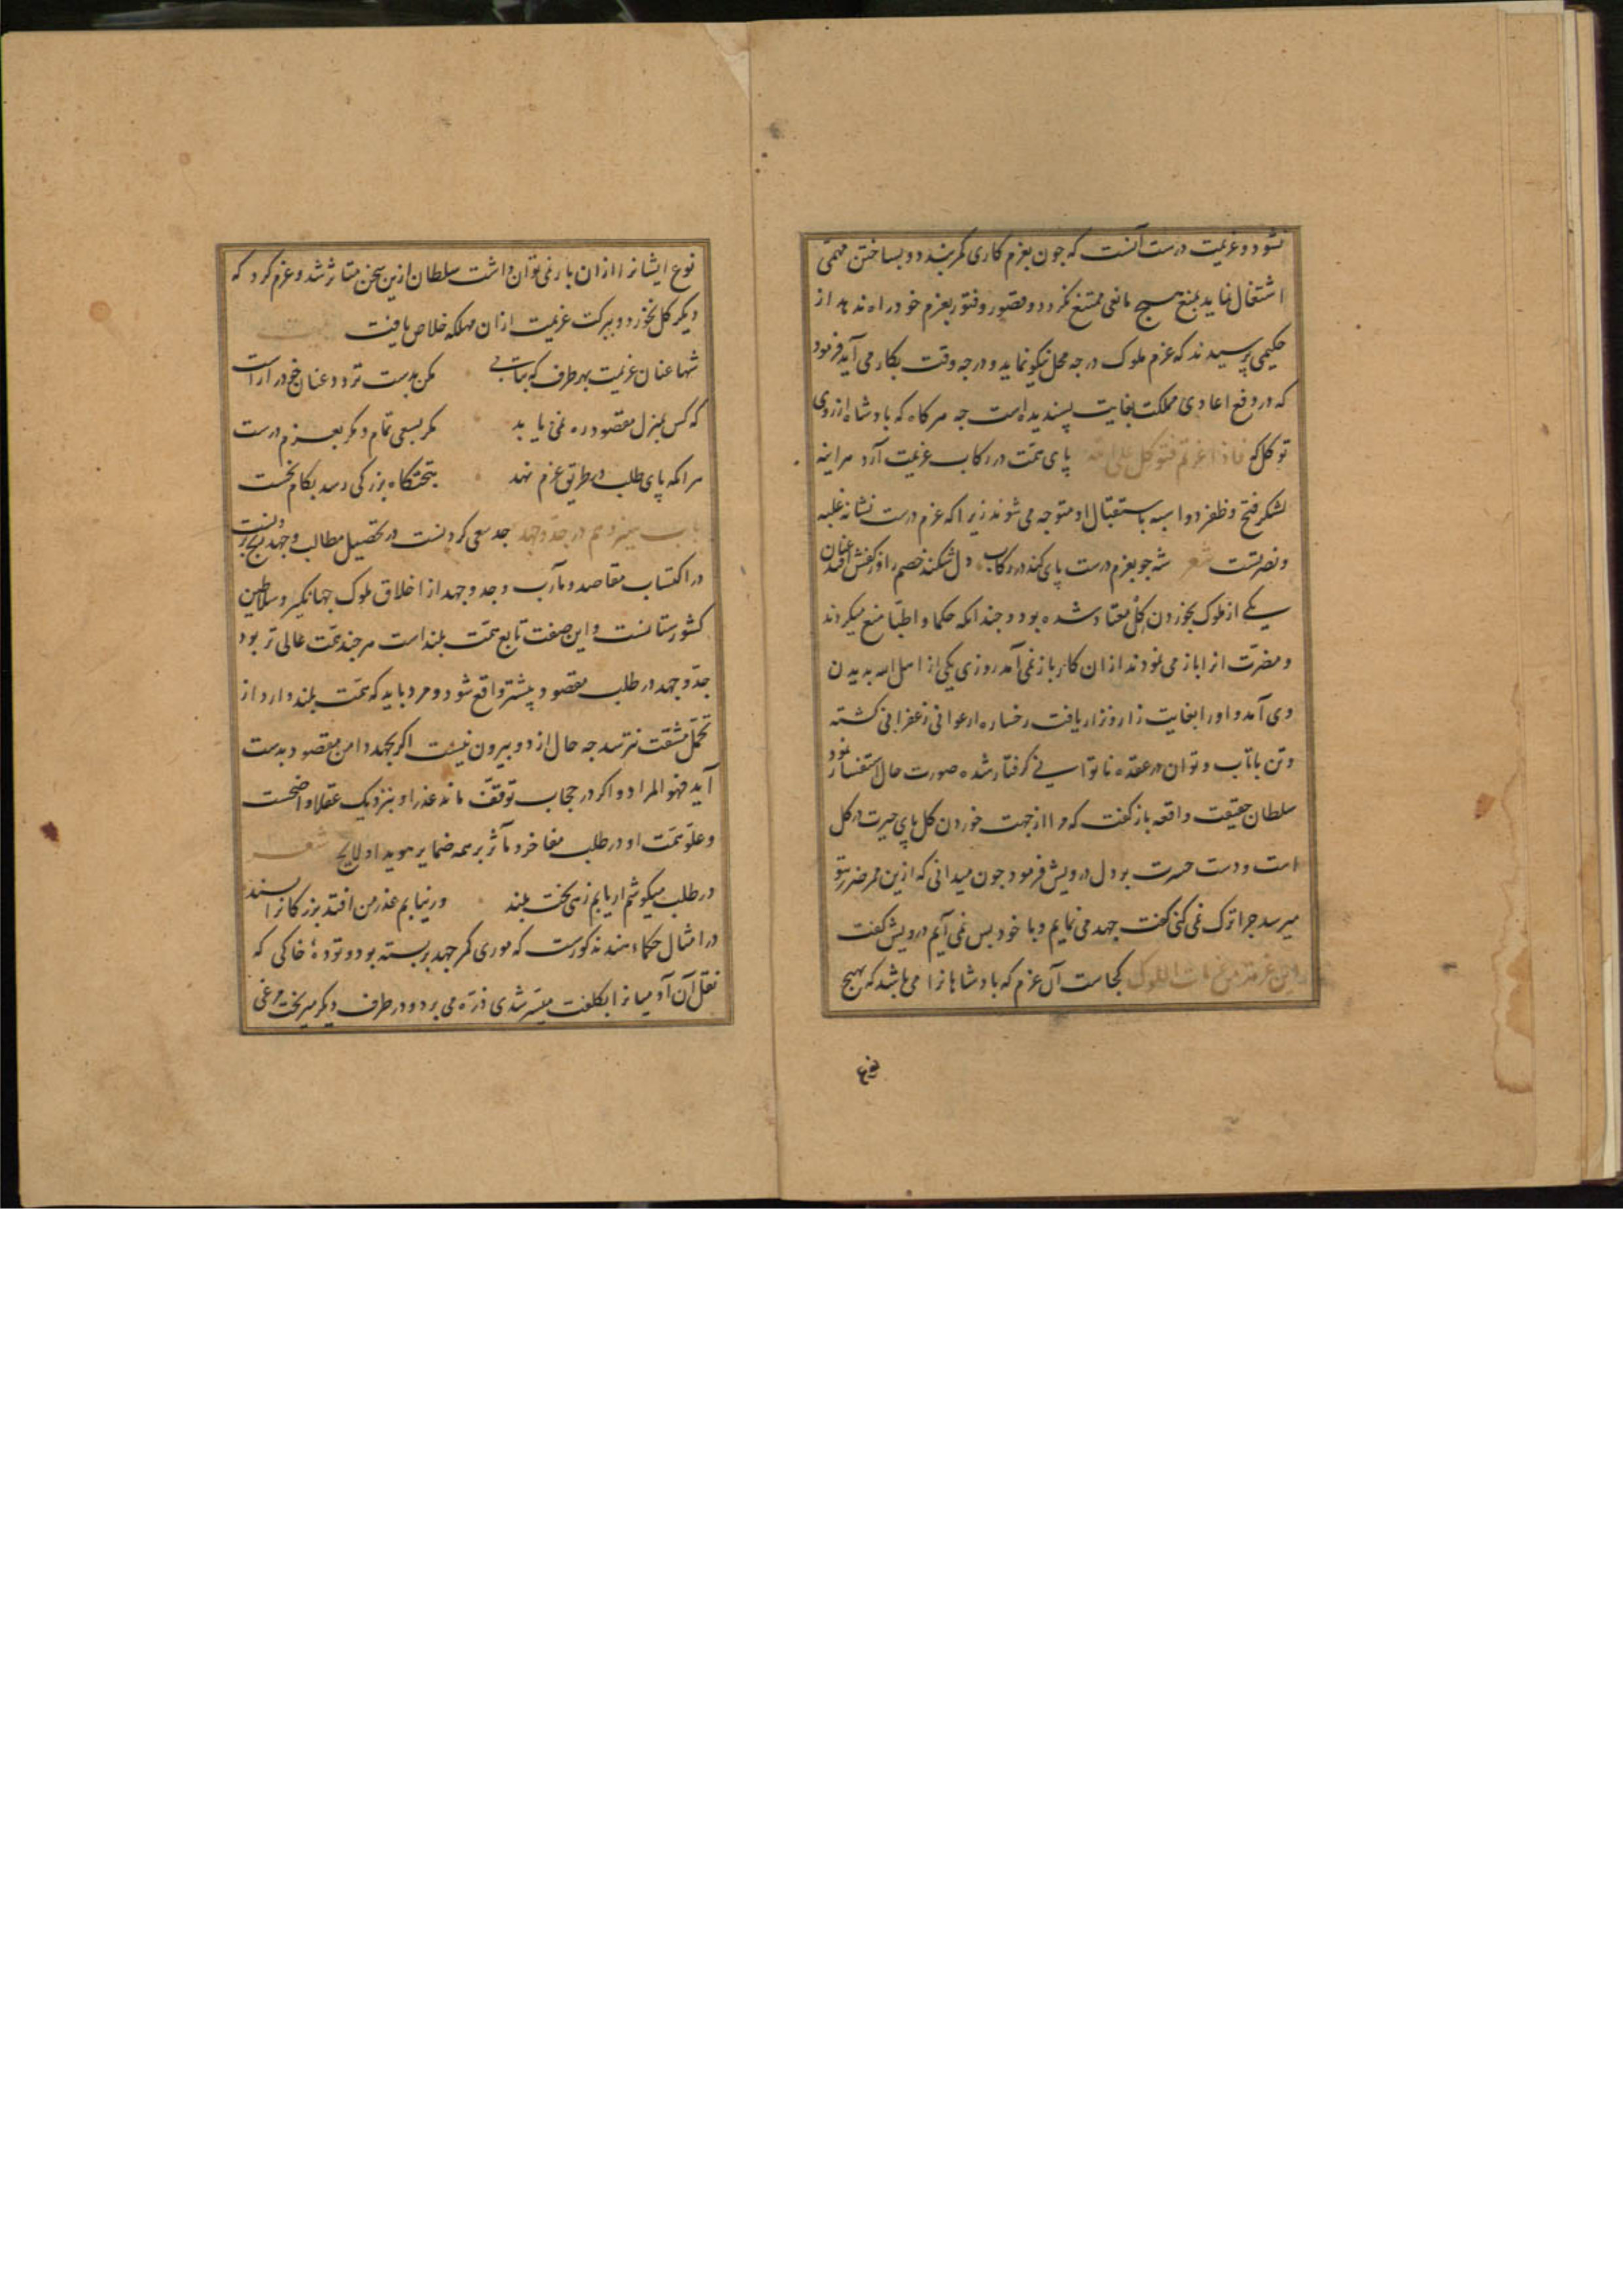 نشود و عزیمت درست آنست که جون بعزم کاری کمر بندد و بساختن مهمّی
اشتغال نماید بمنع هیچ مانعی ممتنع نکردد و قصور و فتور بعزم خود راه ندهد از
حکیمی پرسیدند که عزم ملوک در جه محل نیکو نماید و در جه وقت بکار می آید فرمود
که در دفع اعادی مملکت بغایت پسندیده است جه هرکاه که بادشاه از روی
توکل که فاذا عزمتم فتوکل علی الله پای همّت در رکاب عزیمت آرد هراینه
لشکر فتح و ظفر دو اسبه باستقبال او متوجه می شوند زیرا که عزم درست نشانه غلبه
و نصرتست شعر شه جو بعزم درست پای کند در رکاب دل شکند خصم را وز کفش افتد عنان
یکے از ملوک بخوردن گل معتاد شده بود و جندانکه حکما و اطبّا منع میکردند
و مضرّت انرا باز می نمودند از ان کار باز نمی آمد روزی یکی از اهل الله بدیدن
وی آمد و اورا بغایت زار و نزار یافت رخساره ارغوانی زعفرانی کشته
و تن با تاب و توان در عقده ناتوانی کرفتار شده صورت حال استفسار نمود
سلطان حقیقت واقعه باز کفت که مرا از جهت خوردن کل پای حیرت در کل
است و دست حسرت بر دل درویش فرمود جون میدانی که ازین ممر ضرر بتو
میرسد جرا ترک نمی کنی کفت جهد می نمایم و با خود بس نمی آیم درویش کفت
و این عزمة من عزمات الملوک کجاست آن عزم که بادشاهانرا می باشد که بهیج
نوع
نوع ایشانرا ازان باز نمی توان داشت سلطان ازین سخن متاثر شد و عزم کرد که
دیکر کل نخورد و ببرکت عزیمت ازان مهلکه خلاص یافت بیت
شها عنان عزیمت بهر طرف که بتابی مکن بدست تردد عنان خج در ار است
که کس بمنزل مقصود ره نمی یابد مکر بسعی تمام و مکر بعزم درست
هرانکه پای طلب در طریق عزم نهد بتختکاه بزرکی رسد بکام نخست
باب سیزدهم در جدّ و جهد جد سعی کردنست در تحصیل مطالب و جهد رنج بردنست
در اکتساب مقاصد و مآرب و جد و جهد از اخلاق ملوک جهانکیر و سلاطین
کشورستانست و این صفت تابع همّت بلند است هرجند همّت عالی تر بود
جدّ و جهد در طلب مقصود پیشتر واقع شود و مرد باید که همّت بلند دارد از
تحمّل مشقت نترسد جه حال از دو بیرون نیست اکر بجهد دامن مقصود بدست
آید فهو المراد و اکر در حجاب توقّف ماند عذر او بنزدیک عقلا واضحست
و علوّ همّت او در طلب مفاخر و مآثر بر همه ضمایر هویدا و لایح شعر
در طلب میکوشم ار یابم زهی بخت بلند ور نیابم عذر من افتد بزرکانرا پسند
در امثال حکماء هند مذکورست که موری کمر جهد بر بسته بود و تودهٔ خاکی که
نقل آن آدمیانرا بکلفت میسّر شدی ذرّه می برد و در طرف دیکر میریخت مرغی